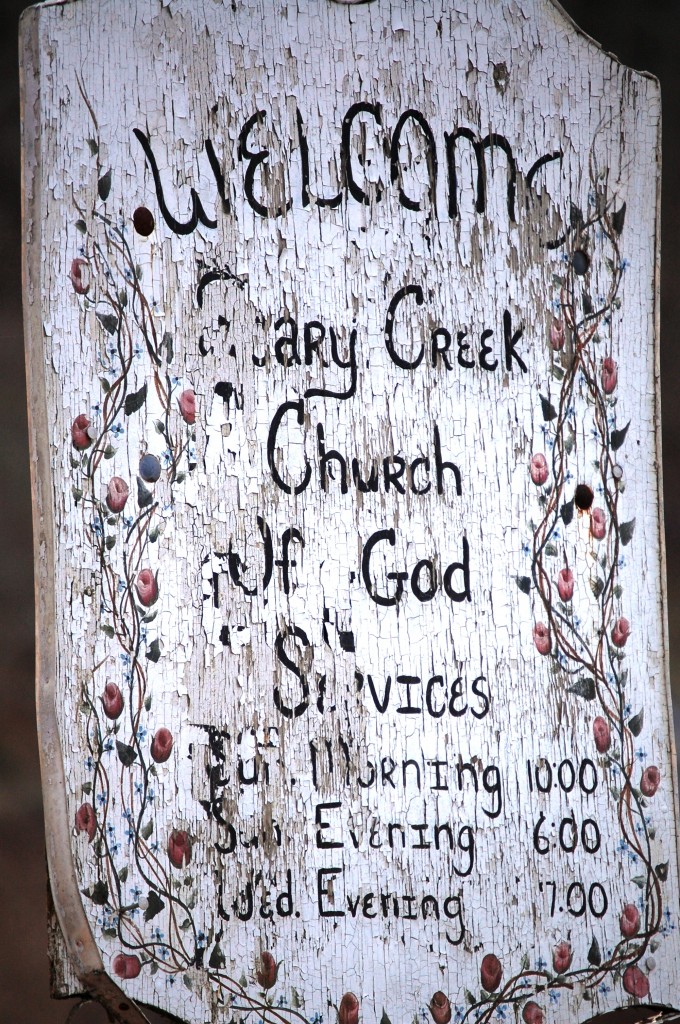 WELCOME
Creek
Church
Of God
Services
Sun. Morning 10:00
Sun Evening 6:00
Wed. Evening 7:00